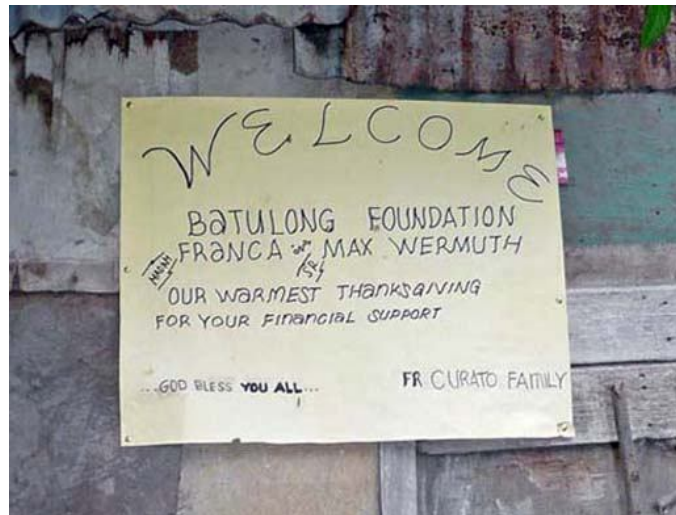 WELCOME
BaTULONG FOUNDATION
MADAM FRaNCA and SIR MAX WERMUTH
OUR WaRMEST THaNKSGIVING
FOR YOUR FINaNCIaL SUPPORT
...GOD BLESS YOU ALL...
FR CURATO FAMILY